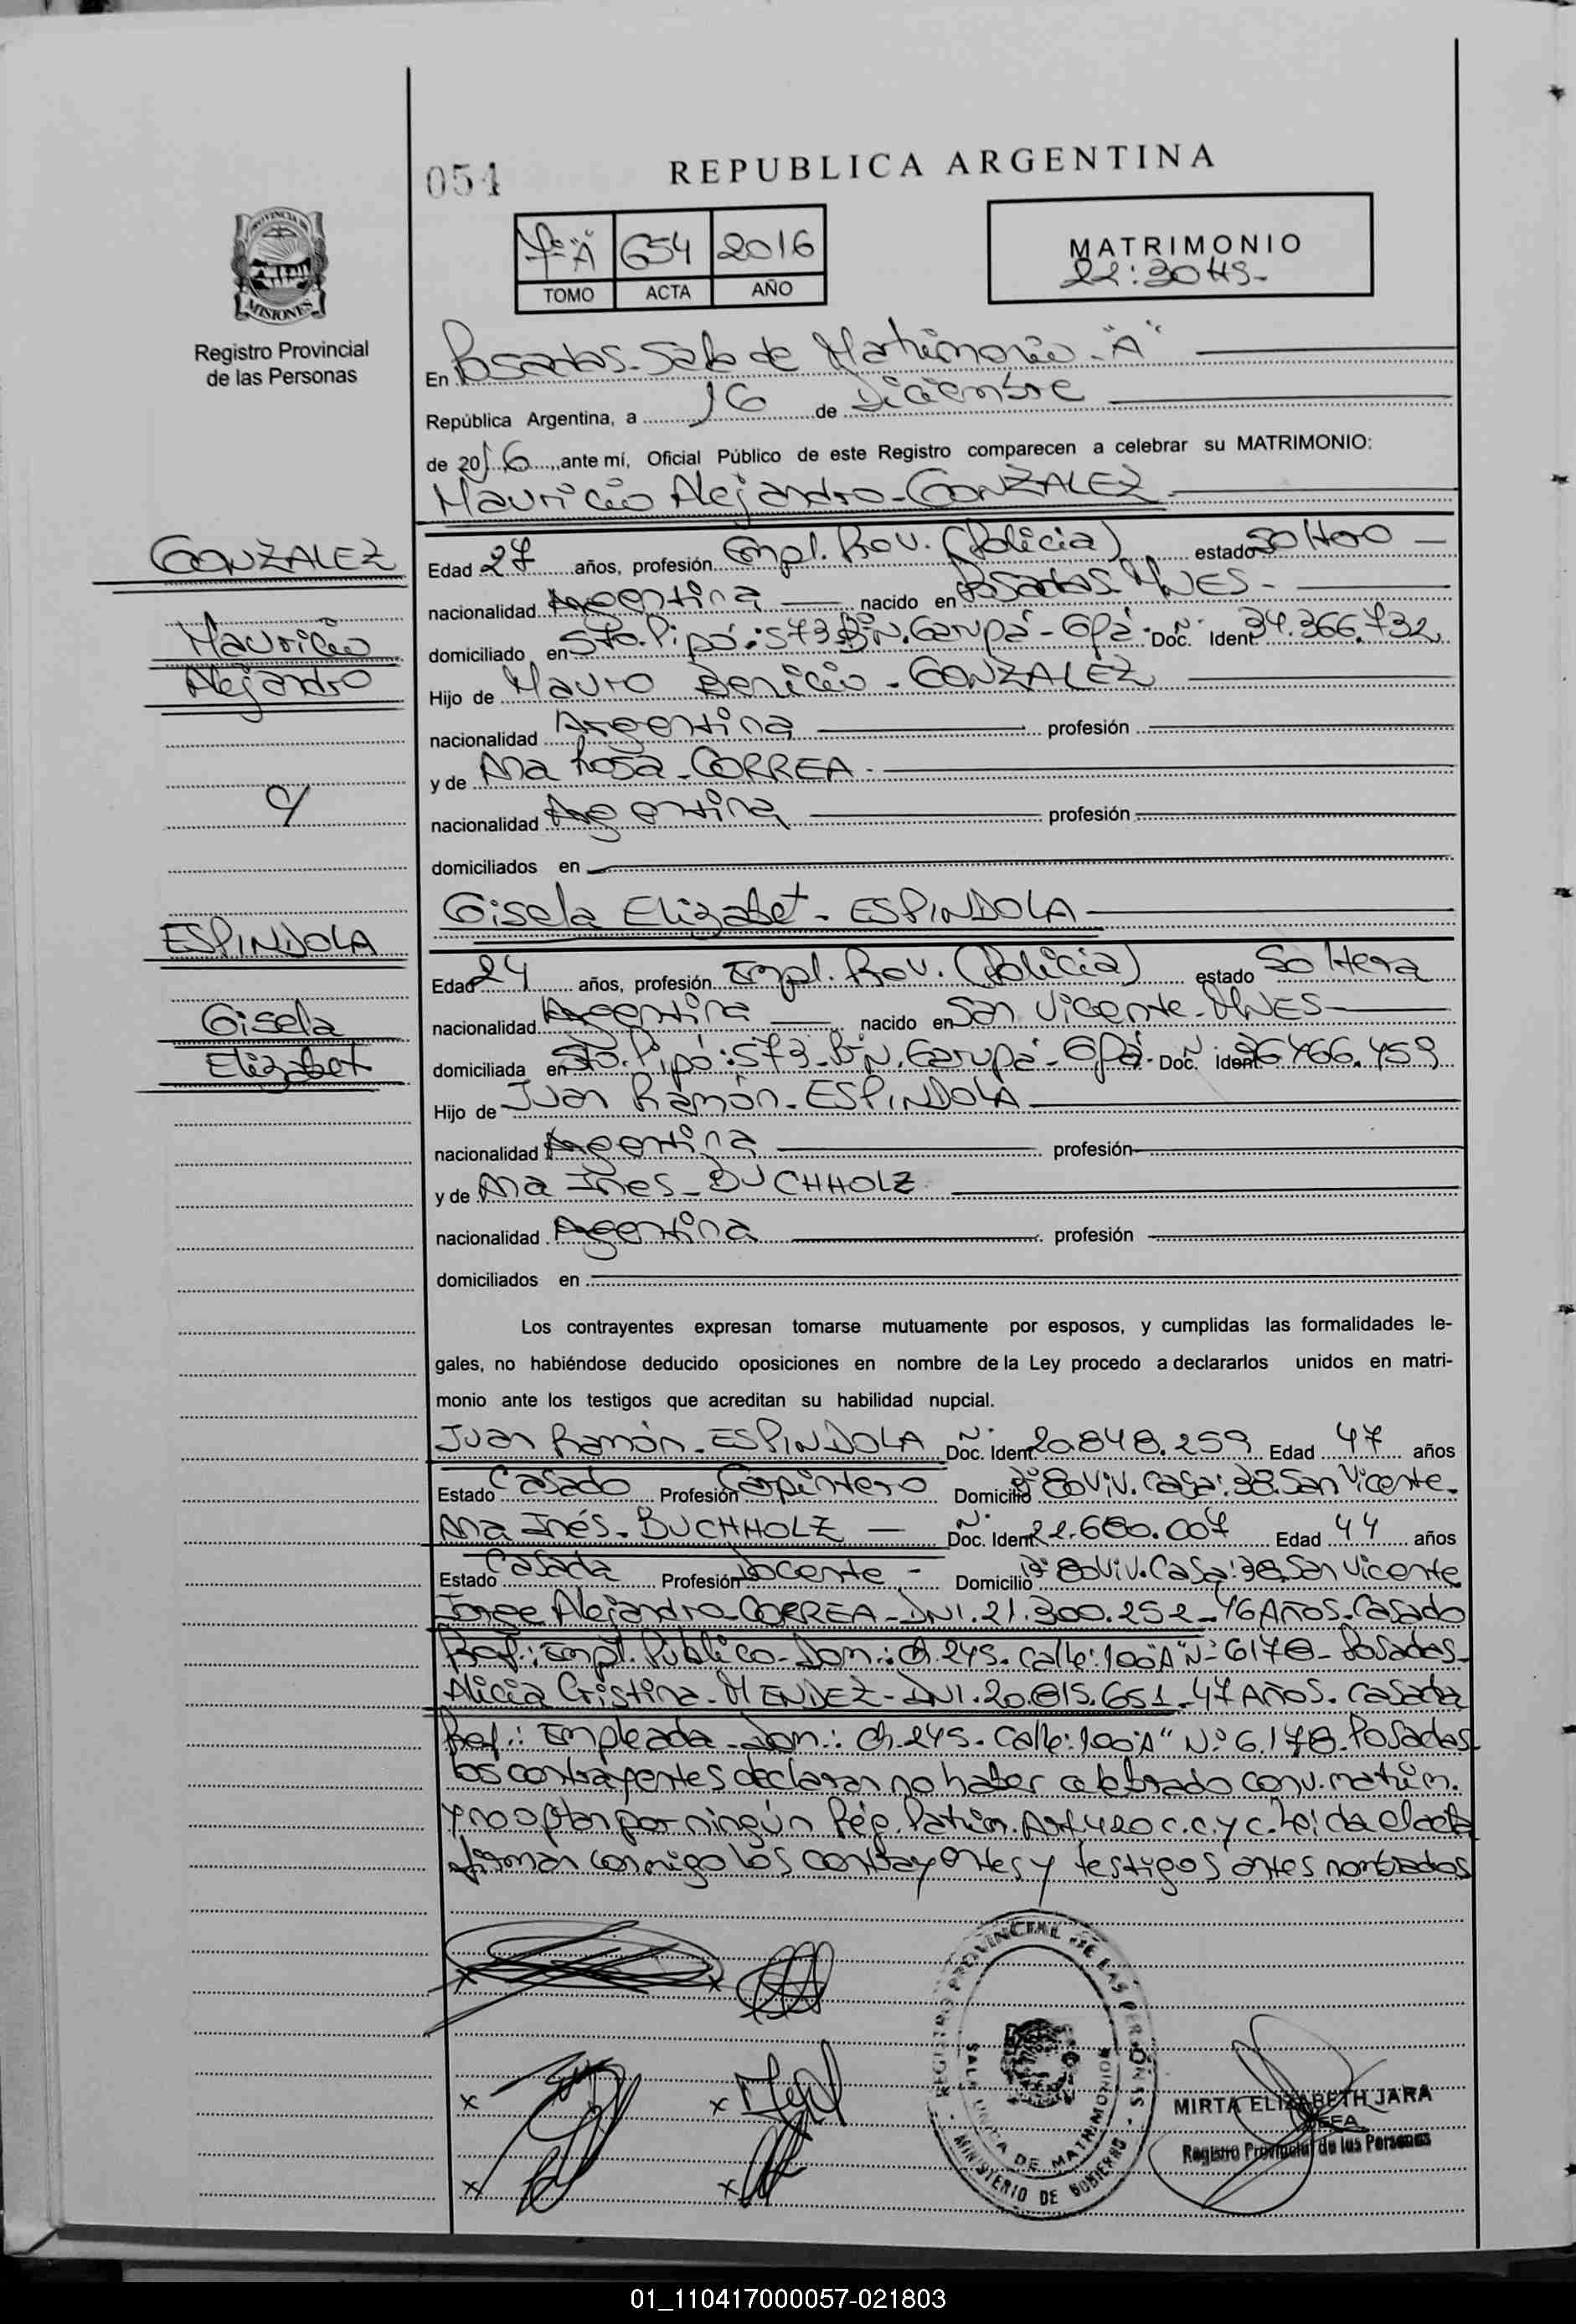 054
REPUBLICA ARGENTINA
PROVINCIA DE
MISIONES
Registro Provincial
de las Personas
7º "A" 654 2016
TOMO ACTA AÑO
MATRIMONIO
22:30 HS-
En Posadas-Sala de Matrimonio-"A"
República Argentina, a 16 de Diciembre
de 2016, ante mí, Oficial Público de este Registro comparecen a celebrar su MATRIMONIO:
Mauricio Alejandro-GONZALEZ
GONZALEZ
Mauricio
Alejandro
c/
ESPINDOLA
Gisela
Elizabet
Edad 27 años, profesión Empl. Prov. (Policia) estado soltero
nacionalidad Argentina nacido en Posadas-MNES-
domiciliado en Sto. Pipó:573-Bº N. Garupá-Gpá- Doc. Nº Ident. 34.366.732
Hijo de Mauro Benicio-GONZALEZ
nacionalidad Argentina profesión
y de Ana Rosa-CORREA-
nacionalidad Argentina profesión
domiciliados en
Gisela Elizabet-ESPINDOLA
Edad 24 años, profesión Empl. Prov. (Policia) estado soltera
nacionalidad Argentina nacido en San Vicente-MNES
domiciliada en Sto. Pipó:573-Bº N. Garupá-Gpá- Doc. Nº Ident. 36.466.459
Hijo de Juan Ramón-ESPINDOLA
nacionalidad Argentina profesión
y de Ana Ines-BUCHHOLZ
nacionalidad Argentina profesión
domiciliados en
Los contrayentes expresan tomarse mutuamente por esposos, y cumplidas las formalidades le-
gales, no habiéndose deducido oposiciones en nombre de la Ley procedo a declararlos unidos en matri-
monio ante los testigos que acreditan su habilidad nupcial.
Juan Ramón-ESPINDOLA Doc. Nº Ident. 20.848.259 Edad 47 años
Estado Casado Profesión Carpintero Domicilio Bº 80 Viv. Casa:38. San Vicente-
Ana Inés-BUCHHOLZ Doc. Nº Ident. 22.680.007 Edad 44 años
Estado Casada Profesión Docente- Domicilio Bº 80 Viv. Casa:38. San Vicente
Jorge Alejandro-CORREA-DNI.21.300.252-46 Años-Casado
Prof.: Empl. Público-Dom.: Ch.245. Calle:100"A" Nº 6178-Posadas-
Alicia Cristina-MENDEZ-DNI.20.815.651-47 Años. Casada
Prof.: Empleada-Dom.: Ch.245. Calle:100"A" Nº 6.178-Posadas
los contrayentes declaran no haber celebrado conv. matrim.
y no optan por ningún Rég. Patrim. Art. 420 c.c. y c. Leída el acta
firman conmigo los contrayentes y testigos antes nombrados
REGISTRO PROVINCIAL DE LAS PERSONAS
SALA UNICA DE MATRIMONIOS
MINISTERIO DE GOBIERNO
MIRTA ELIZABETH JARA
JEFA
Registro Provincial de las Personas
01_110417000057-021803